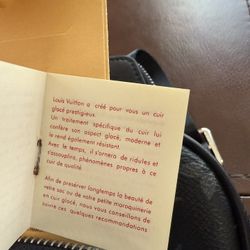 Louis Vuitton a créé pour vous un cuir
glacé prestigieux.
Un traitement spécifique du cuir lui
confère son aspect glacé, moderne et
le rend également résistant.
Avec le temps, il s'ornera de ridules et
s'assouplira, phénomènes propres à ce
cuir de qualité.
Afin de préserver longtemps la beauté de
votre sac ou de votre petite maroquinerie
en cuir glacé, nous vous conseillons de
suivre ces quelques recommandations